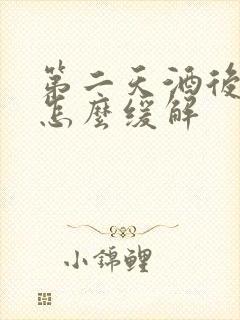 第二天酒後
怎麼缓解
小錦鲤